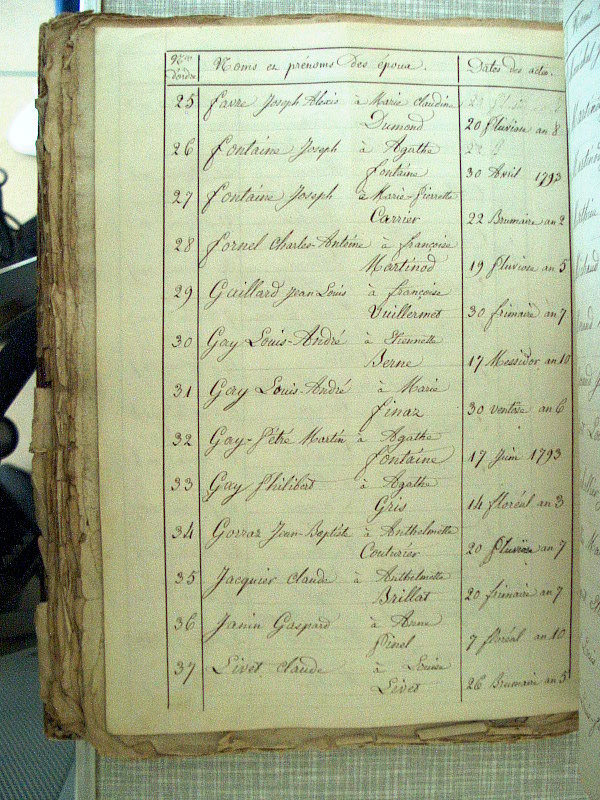 Nos d'ordre Noms et prénoms des époux. Dates des actes.
25 Favre Joseph Alexis à Marie Claudine
Dumond 20 Pluviose an 8
26 Fontaine Joseph à Agathe
Fontaine 30 Avril 1793
27 Fontaine Joseph à Marie-Pierrette
Carrier 22 Brumaire an 2
28 Fornel Charles-Antoine à Françoise
Martinod 19 Pluviose an 5
29 Gaillard Jean Louis à Françoise
Vuillermet 30 frimaire an 7
30 Gay Louis-André à Etiennette
Berne 17 Messidor an 10
31 Gay Louis-André à Marie
Finaz 30 ventose an 6
32 Gay-Pétré Martin à Agathe
Fontaine 17 Juin 1793
33 Guy Philibert à Agathe
Gris 14 floréal an 3
34 Gorraz Jean-Baptiste à Anthelmette
Couturier 20 Pluviose an 7
35 Jacquier Claude à Anthelmette
Brillat 20 frimaire an 7
36 Janin Gaspard à Anne
Pinel 7 floréal an 10
37 Livet Claude à Louise
Livet 26 Brumaire an 5